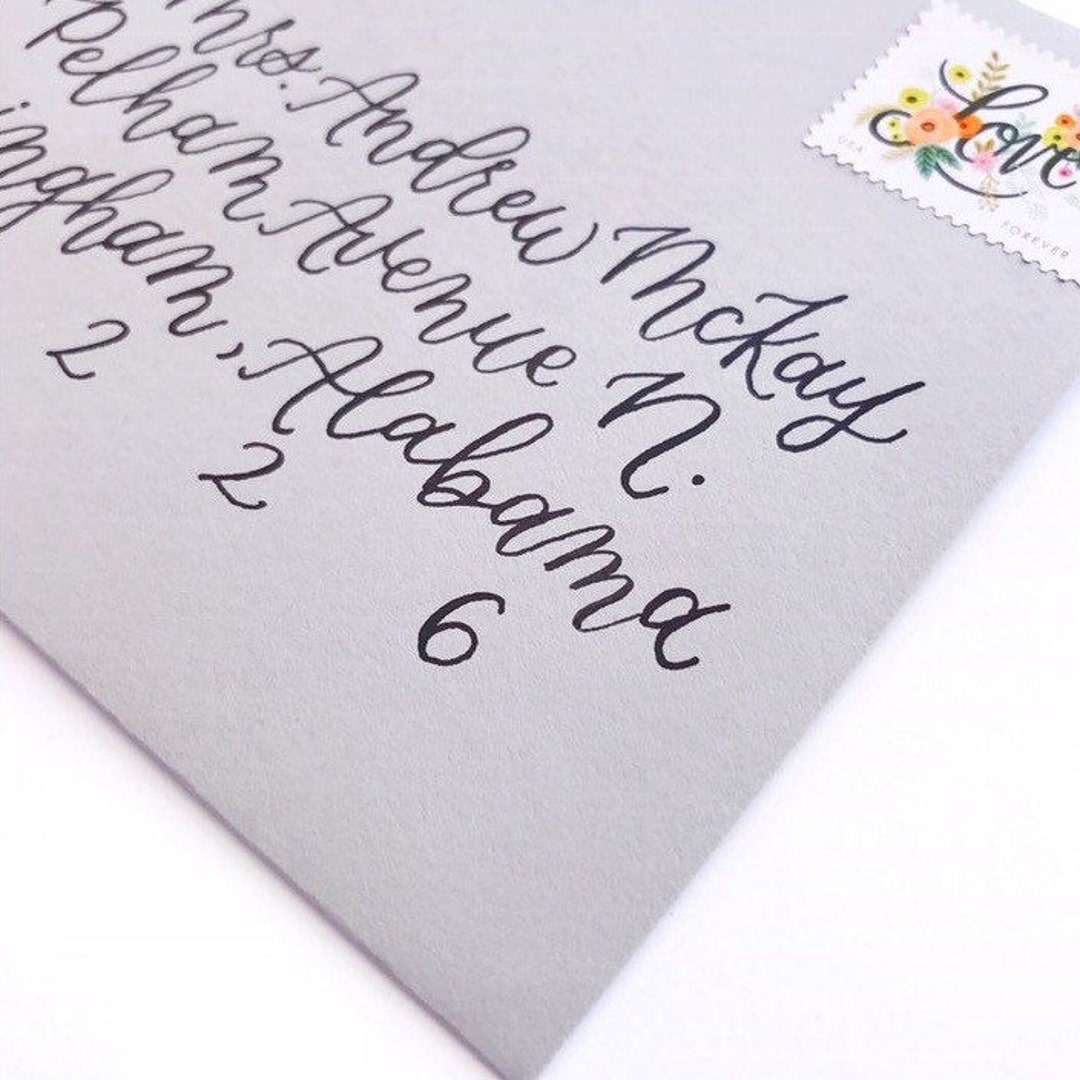 Mrs. Andrew McKay
Pelham Avenue N.
ingham, Alabama
2 2 6
love
USA
FOREVER